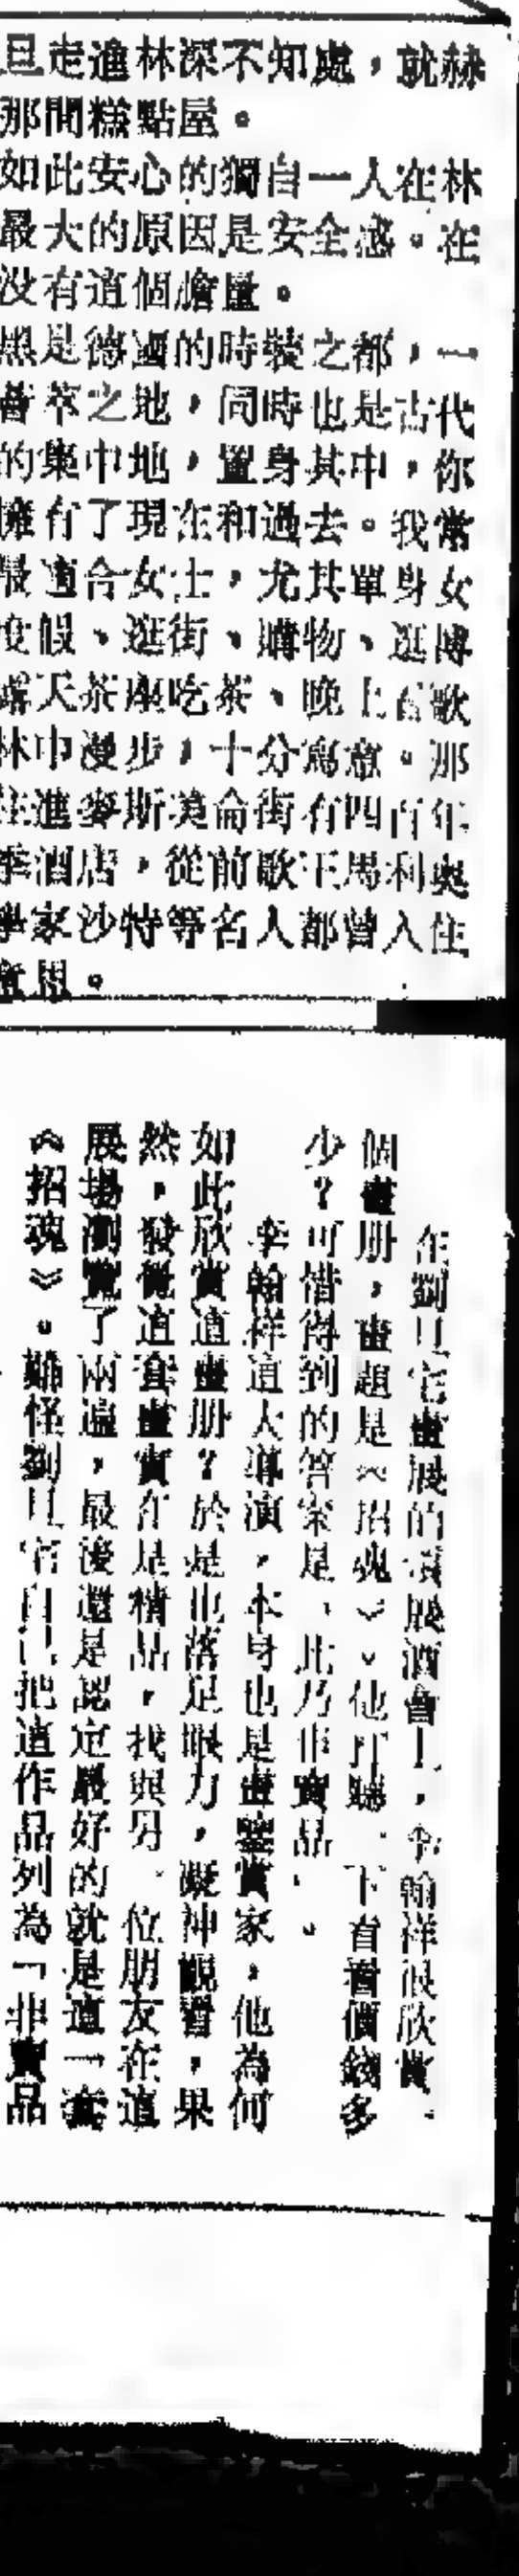 旦走進林深不知處，就赫
那間糕點屋。
如此安心的獨自一人在林
最大的原因是安全感。在
没有這個膽量。
黑是德國的時裝之都，一
薈萃之地，同時也是古代
的集中地，置身其中，你
擁有了現在和過去。我常
最適合女士，尤其單身女
度假、逛街、購物、逛博
露天茶座吃茶、晚上看歌
林中漫步，十分寫意。那
住進麥斯 倫街有四百年
季酒店，從前歌王馬利奥
學家沙特等名人都曾入住
意思。
在劉 宅畫展的 展酒會上，李翰祥很欣賞一
個畫册，畫題是《招魂》。他打聽一下看看價錢多
少？可惜得到的答案是，此乃非賣品。
李翰祥這大導演，本身也是畫鑒賞家，他為何
如此欣賞這畫册？於是也落足眼力，凝神觀看，果
然，發覺這套畫實在是精品，我與另一位朋友在這
展場瀏覽了兩遍，最後還是認定最好的就是這一套
《招魂》。難怪劉 宅自己把這作品列為「非賣品